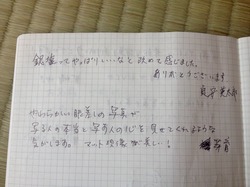 銀塩ってやっぱりいいなと改めて感じました。
ありがとうございます
やわらかい眼差しの写真が
写る人の本当と写す人の心を見せてくれるような
気がします。マット現像が美しい!